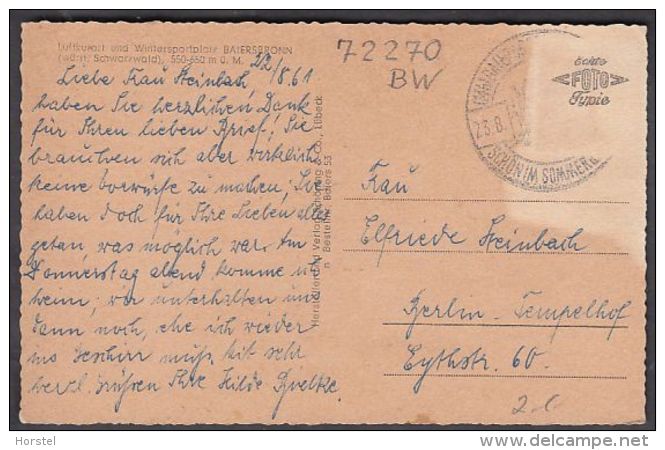 Luftkurort und Wintersportplatz BAIERSBRONN
(württ. Schwarzwald), 550-650 m ü. M.
22/8.61
Liebe Frau Steinbach,
haben Sie herzlichen Dank
für Ihren lieben Brief, Sie
brauchen sich aber wirklich
keine Vorwürfe zu machen, Sie
haben doch für Ihre Lieben alles
getan was möglich war. Am
Donnerstag abend komme ich
heim, wir unterhalten uns
dann noch, ehe ich wieder
ins Geschirr muß. Mit sehr
herzl. Grüßen Ihre Hilde
Herstellung u. Verlag Schöning & Co., Lübeck
Bestellnr. Baiers 53
72270
BW
23.8.
SCHÖN IM SOMMER
Echte
FOTO
Typie
Frau
Elfriede Steinbach
Berlin-Tempelhof
Eythstr. 60.
Horstel
www.delcampe.net